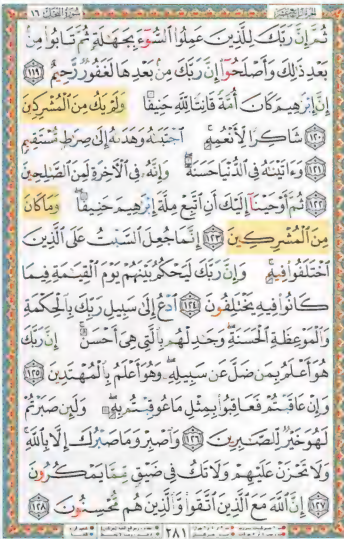 سُورَةُ النَّحۡلِ ١٦
ثُمَّ إِنَّ رَبَّكَ لِلَّذِينَ عَمِلُوا۟ ٱلسُّوٓءَ بِجَهَـٰلَةٍ ثُمَّ تَابُوا۟ مِنۢ
بَعۡدِ ذَٰلِكَ وَأَصۡلَحُوٓا۟ إِنَّ رَبَّكَ مِنۢ بَعۡدِهَا لَغَفُورٌ رَّحِيمٌ ١١٩
إِنَّ إِبۡرَٰهِيمَ كَانَ أُمَّةً قَانِتًا لِّلَّهِ حَنِيفًا وَلَمۡ يَكُ مِنَ ٱلۡمُشۡرِكِينَ
١٢٠ شَاكِرًا لِّأَنۡعُمِهِۚ ٱجۡتَبَىٰهُ وَهَدَىٰهُ إِلَىٰ صِرَٰطٍ مُّسۡتَقِيمٍ
١٢١ وَءَاتَيۡنَـٰهُ فِى ٱلدُّنۡيَا حَسَنَةً وَإِنَّهُۥ فِى ٱلۡـَٔاخِرَةِ لَمِنَ ٱلصَّـٰلِحِينَ
١٢٢ ثُمَّ أَوۡحَيۡنَآ إِلَيۡكَ أَنِ ٱتَّبِعۡ مِلَّةَ إِبۡرَٰهِيمَ حَنِيفًا وَمَا كَانَ
مِنَ ٱلۡمُشۡرِكِينَ ١٢٣ إِنَّمَا جُعِلَ ٱلسَّبۡتُ عَلَى ٱلَّذِينَ
ٱخۡتَلَفُوا۟ فِيهِۚ وَإِنَّ رَبَّكَ لَيَحۡكُمُ بَيۡنَهُمۡ يَوۡمَ ٱلۡقِيَـٰمَةِ فِيمَا
كَانُوا۟ فِيهِ يَخۡتَلِفُونَ ١٢٤ ٱدۡعُ إِلَىٰ سَبِيلِ رَبِّكَ بِٱلۡحِكۡمَةِ
وَٱلۡمَوۡعِظَةِ ٱلۡحَسَنَةِ وَجَـٰدِلۡهُم بِٱلَّتِى هِىَ أَحۡسَنُ إِنَّ رَبَّكَ
هُوَ أَعۡلَمُ بِمَن ضَلَّ عَن سَبِيلِهِۦ وَهُوَ أَعۡلَمُ بِٱلۡمُهۡتَدِينَ ١٢٥
وَإِنۡ عَاقَبۡتُمۡ فَعَاقِبُوا۟ بِمِثۡلِ مَا عُوقِبۡتُم بِهِۦ وَلَئِن صَبَرۡتُمۡ
لَهُوَ خَيۡرٌ لِّلصَّـٰبِرِينَ ١٢٦ وَٱصۡبِرۡ وَمَا صَبۡرُكَ إِلَّا بِٱللَّهِ
وَلَا تَحۡزَنۡ عَلَيۡهِمۡ وَلَا تَكُ فِى ضَيۡقٍ مِّمَّا يَمۡكُرُونَ
١٢٧ إِنَّ ٱللَّهَ مَعَ ٱلَّذِينَ ٱتَّقَوا۟ وَّٱلَّذِينَ هُم مُّحۡسِنُونَ ١٢٨
٢٨١